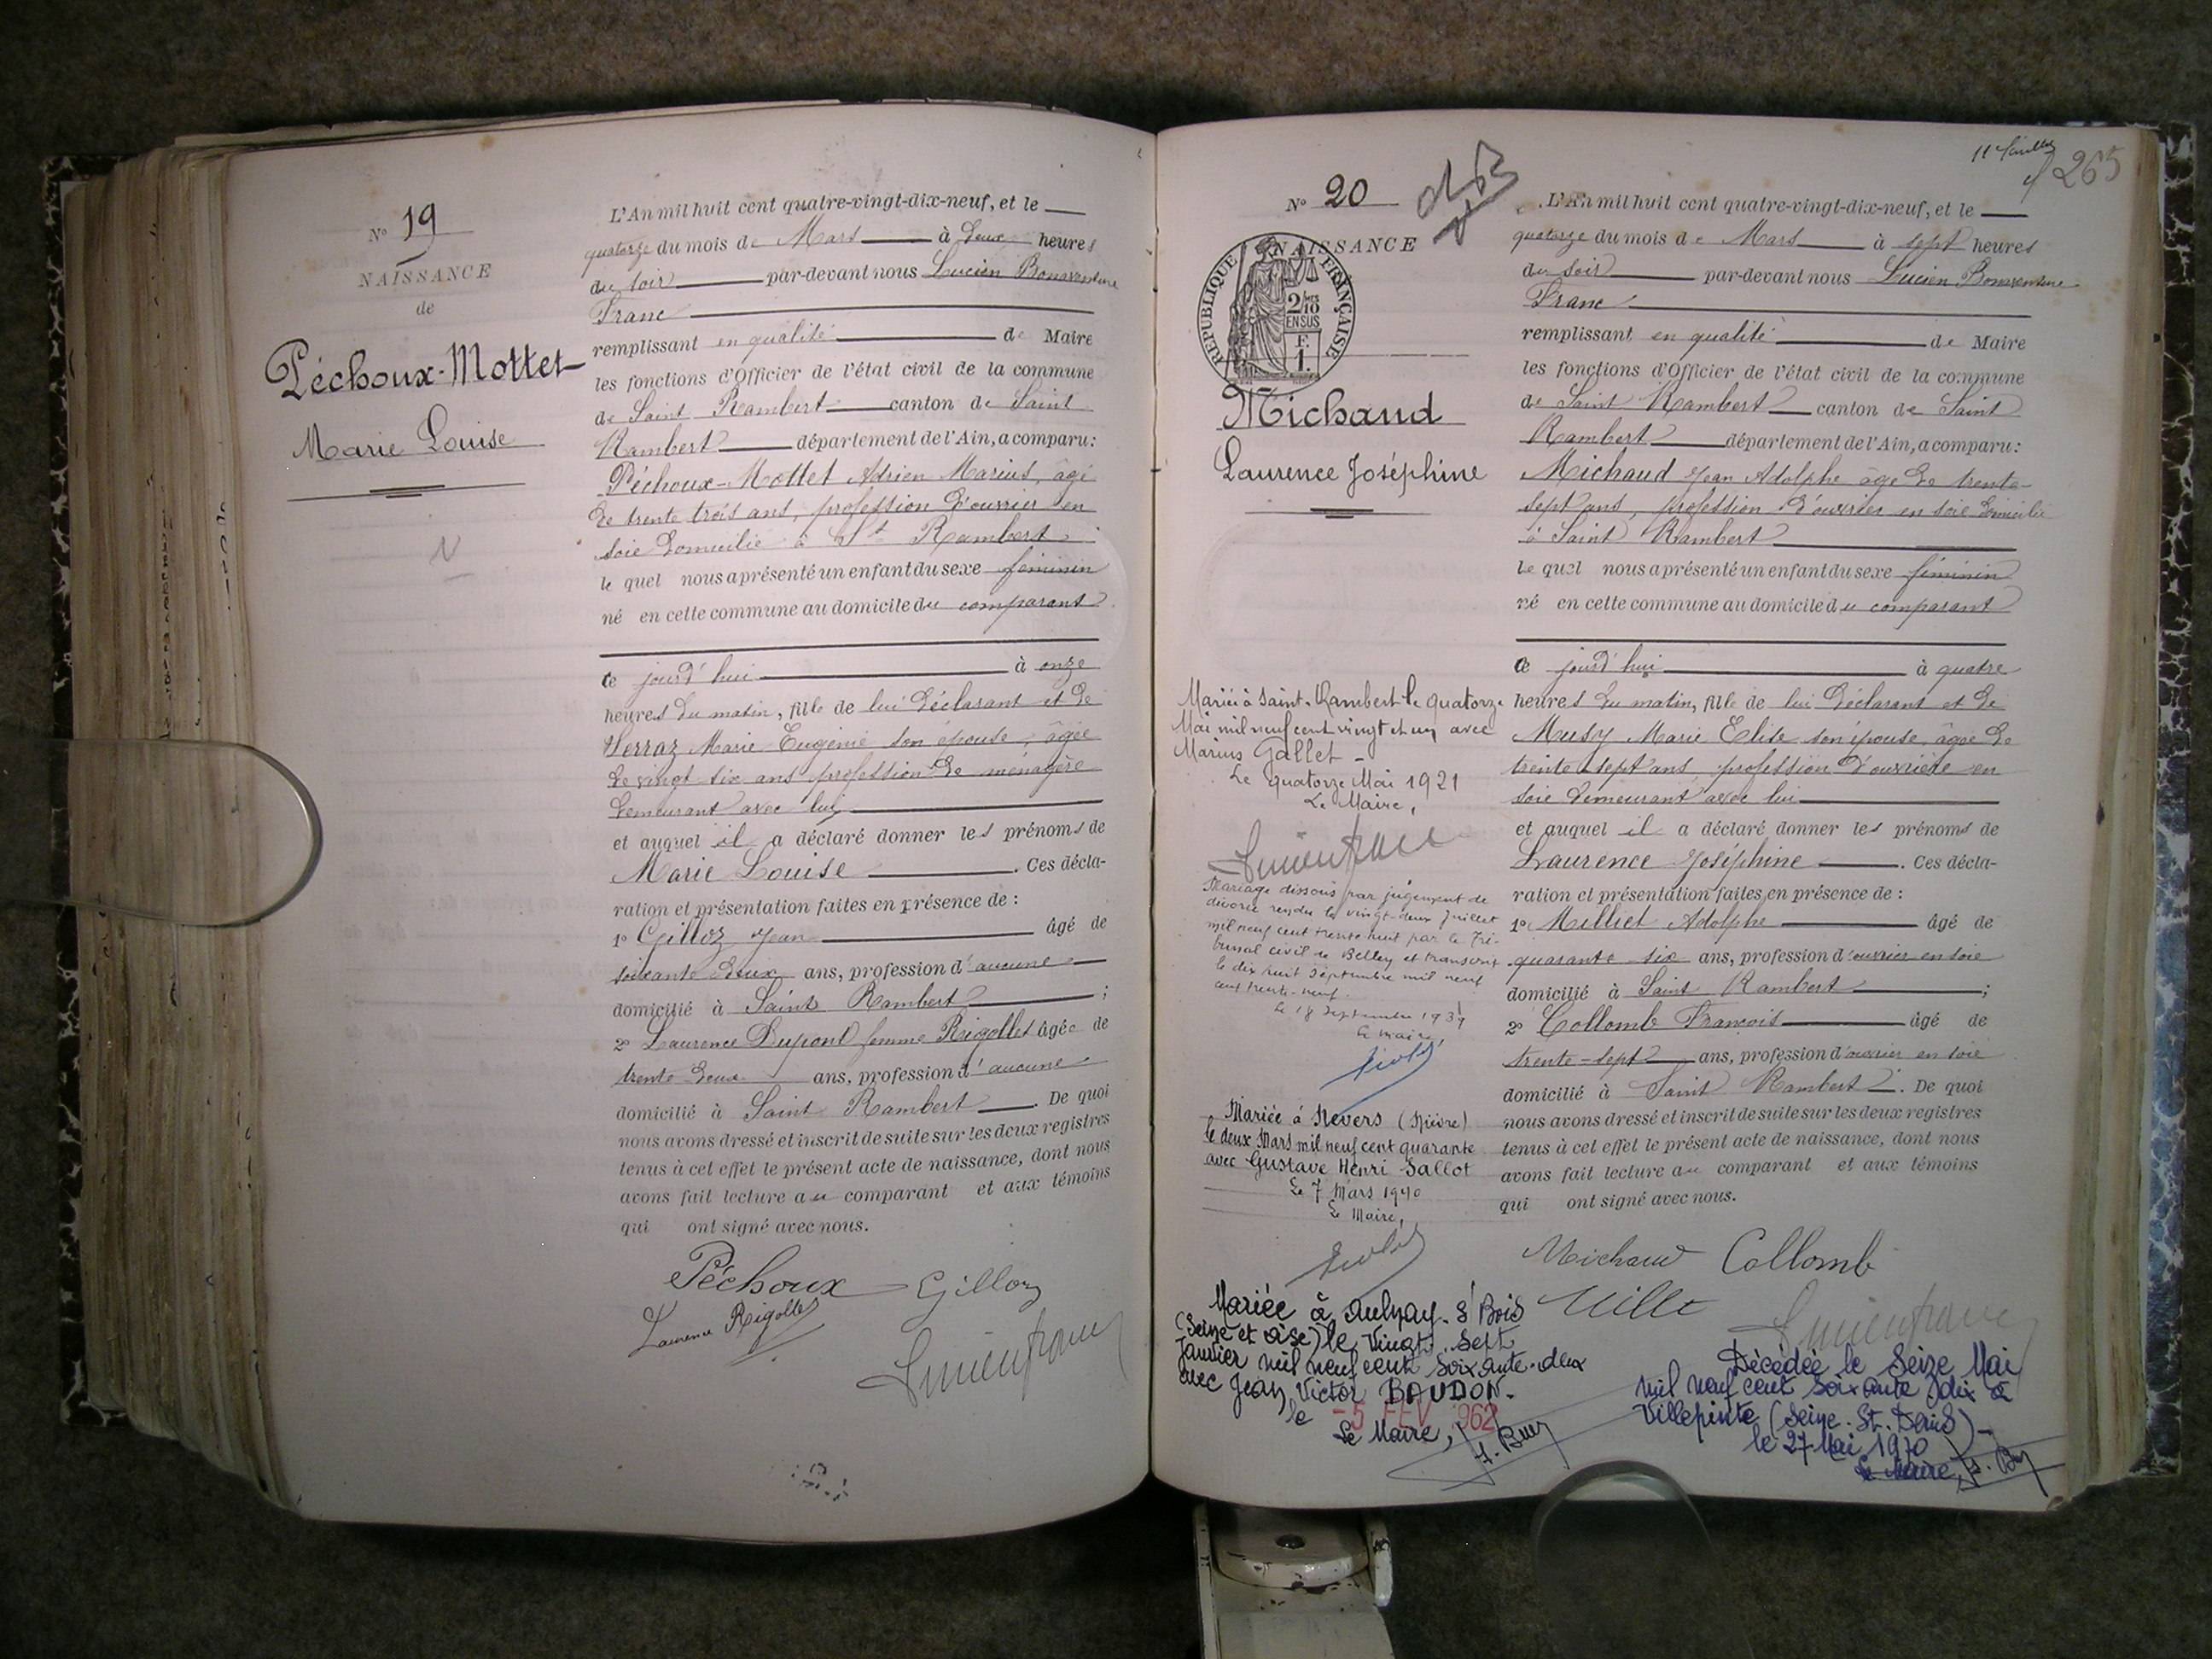 N° 19
NAISSANCE
de
Péchoux-Mottet
Marie Louise
N
L'An mil huit cent quatre-vingt-dix-neuf, et le
quatorze du mois de Mars à deux heures
du soir par-devant nous Lucien Bonaventure
Franc
remplissant en qualité de Maire
les fonctions d'Officier de l'état civil de la commune
de Saint Rambert canton de Saint
Rambert département de l'Ain, a comparu :
Péchoux-Mottet Adrien Marius, âgé
de trente trois ans, profession d'ouvrier en
soie domicilié à St Rambert
le quel nous a présenté un enfant du sexe féminin
né en cette commune au domicile du comparant
ce jourd'hui à onze
heures du matin, fille de lui déclarant et de
Verraz Marie Eugénie son épouse, âgée
de vingt six ans profession de ménagère
demeurant avec lui
et auquel il a déclaré donner les prénoms de
Marie Louise . Ces décla-
ration et présentation faites en présence de :
1° Gilloz Jean âgé de
soixante deux ans, profession d'aucune
domicilié à Saint Rambert ;
2° Laurence Dupont femme Rigollet âgée de
trente deux ans, profession d'aucune
domicilié à Saint Rambert . De quoi
nous avons dressé et inscrit de suite sur les deux registres
tenus à cet effet le présent acte de naissance, dont nous
avons fait lecture au comparant et aux témoins
qui ont signé avec nous.
Péchoux Gilloz
Laurence Rigollet
Lucien franc
11e feuillet
265
N° 20
NAISSANCE
RÉPUBLIQUE FRANÇAISE
2/10
EN SUS
F.
1.
Michaud
Laurence Joséphine
L'An mil huit cent quatre-vingt-dix-neuf, et le
quatorze du mois de Mars à sept heures
du soir par-devant nous Lucien Bonaventure
Franc
remplissant en qualité de Maire
les fonctions d'Officier de l'état civil de la commune
de Saint Rambert canton de Saint
Rambert département de l'Ain, a comparu :
Michaud Jean Adolphe âgé de trente-
sept ans, profession d'ouvrier en soie domicilié
à Saint Rambert
le quel nous a présenté un enfant du sexe féminin
né en cette commune au domicile du comparant
ce jourd'hui à quatre
heures du matin, fille de lui déclarant et de
Musy Marie Elise son épouse, âgée de
trente sept ans, profession d'ouvrière en
soie demeurant avec lui
et auquel il a déclaré donner les prénoms de
Laurence Joséphine . Ces décla-
ration et présentation faites en présence de :
1° Milliet Adolphe âgé de
quarante six ans, profession d'ouvrier en soie
domicilié à Saint Rambert ;
2° Collomb François âgé de
trente-sept ans, profession d'ouvrier en soie
domicilié à Saint Rambert . De quoi
nous avons dressé et inscrit de suite sur les deux registres
tenus à cet effet le présent acte de naissance, dont nous
avons fait lecture au comparant et aux témoins
qui ont signé avec nous.
Michaud Collomb
Lucien franc
Mariée à Saint-Rambert le quatorze
Mai mil neuf cent vingt et un avec
Marius Gallet -
Le quatorze Mai 1921
Le Maire,
Lucien franc
Mariage dissous par jugement de
divorce rendu le vingt-deux Juillet
mil neuf cent trente huit par le Tri-
bunal civil de Belley et transcrit
le dix huit Septembre mil neuf
cent trente-neuf.
Le 18 Septembre 1939
Le Maire,
Mariée à Nevers (Nièvre)
le deux Mars mil neuf cent quarante
avec Gustave Henri Sallot
Le 7 Mars 1940
Le Maire,
Mariée à Aulnay-s/Bois
(Seine et Oise) le vingt sept
Janvier mil neuf cent soixante-deux
avec Jean Victor BAUDON.
le -5 FEV 1962
Le Maire,
Décédée le Seize Mai
mil neuf cent soixante dix à
Villepinte (Seine-St-Denis)
le 27 Mai 1970
Le Maire,